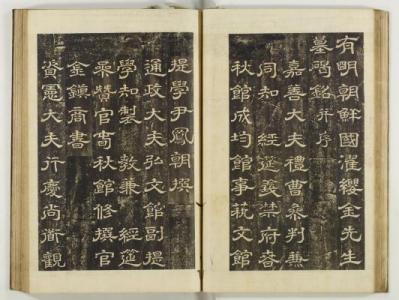 有明朝鮮國濯纓金先生
墓碣銘并序
嘉善大夫禮曹參判兼
同知 經筵義禁府春
秋館成均館事蓺文館
提學尹鳳朝撰
通政大夫弘文館副提
學知製 敎兼 經筵
參贊官春秋館修撰官
金鎭商書
資憲大夫行慶尙衜觀